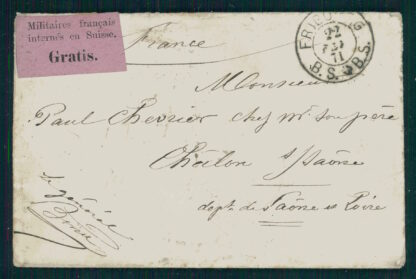 Militaires français
internés en Suisse.
Gratis.
France
22
71
B.S.B.S.
Monsieur
Paul Chevrier chez Mr son père
Châlon s/ Saône
dept. de Saône et Loire